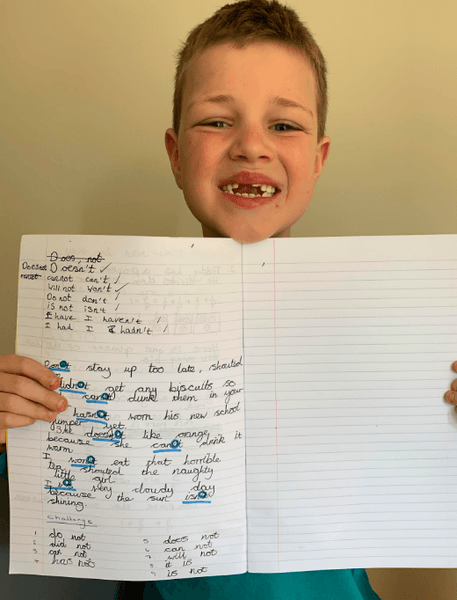 Does not
Does not Doesn't
cannot can't
will not won't
Do not don't
is not isn't
I have I haven't
I had I hadn't
Don't stay up too late, shouted
didn't get any biscuits so
can't dunk them in your
hasn't worn his new school
jumper yet.
She doesn't like orange,
because she can't drink it
warm
I won't eat that horrible
tea, shouted the naughty
little girl
very cloudy day
because the sun isn't
shining.
challenge
1 do not 5 does not
2 did not 6 can not
3 not 7 will not
4 has not 8 it is
9 is not